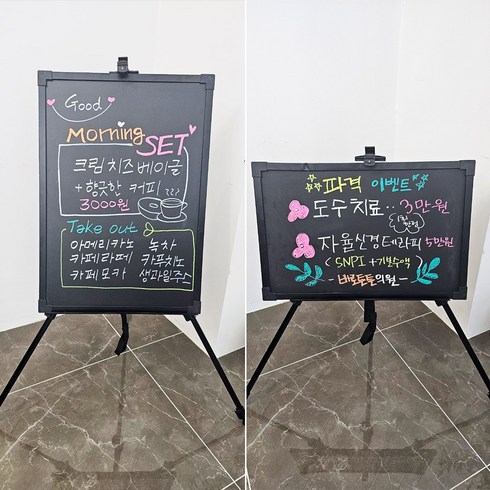 Good
Morning
SET
크림치즈베이글
+향긋한 커피
3000원
Take out
아메리카노 녹차
카페라떼 카푸치노
카페모카 생과일주스
파격 이벤트
도수치료‥3만원
자율신경테라피 5만원
(SNPI +기본수액)
-바로튼튼의원-